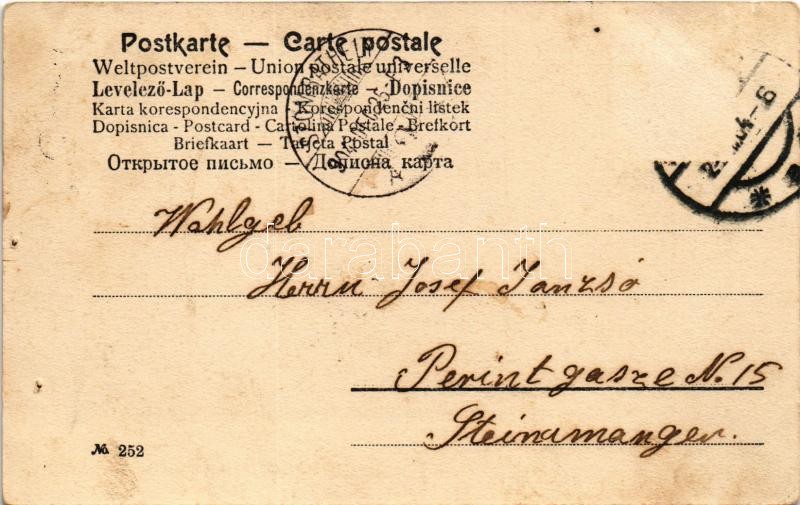 Postkarte — Carte postale
Weltpostverein – Union postale universelle
Levelező-Lap – Correspondenzkarte – Dopisnice
Karta korespondencyjna – Korespondenčni listek
Dopisnica - Postcard - Cartolina Postale - Brefkort
Briefkaart — Tarjeta Postal
Открытое письмо — Дописна карта
Wohlgeb
Herrn Josef Janzsó
Perintgasze No. 15
Steinamanger.
№ 252
darabanth